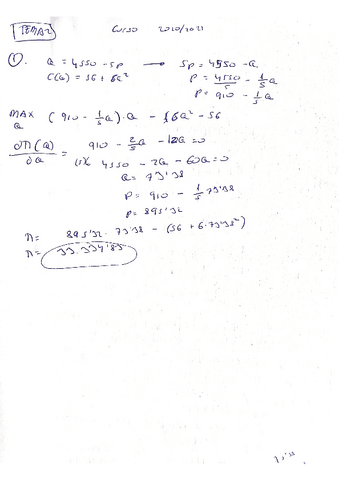 TEMA 2
CURSO 2020/2021
1. Q = 4550 - 5p → 5p = 4550 - Q
C(Q) = 56 + 6Q² P = 4550/5 - 1/5 Q
P = 910 - 1/5 Q
MAX Q (910 - 1/5 Q) · Q - 6Q² - 56
∂Π(Q)/∂Q = 910 - 2/5 Q - 12Q = 0
4550 - 2Q - 60Q = 0
Q = 73'38
P = 910 - 1/5 73'38
P = 895'32
Π = 895'32 · 73'38 - (56 + 6·73'38²)
Π = 33.334'83